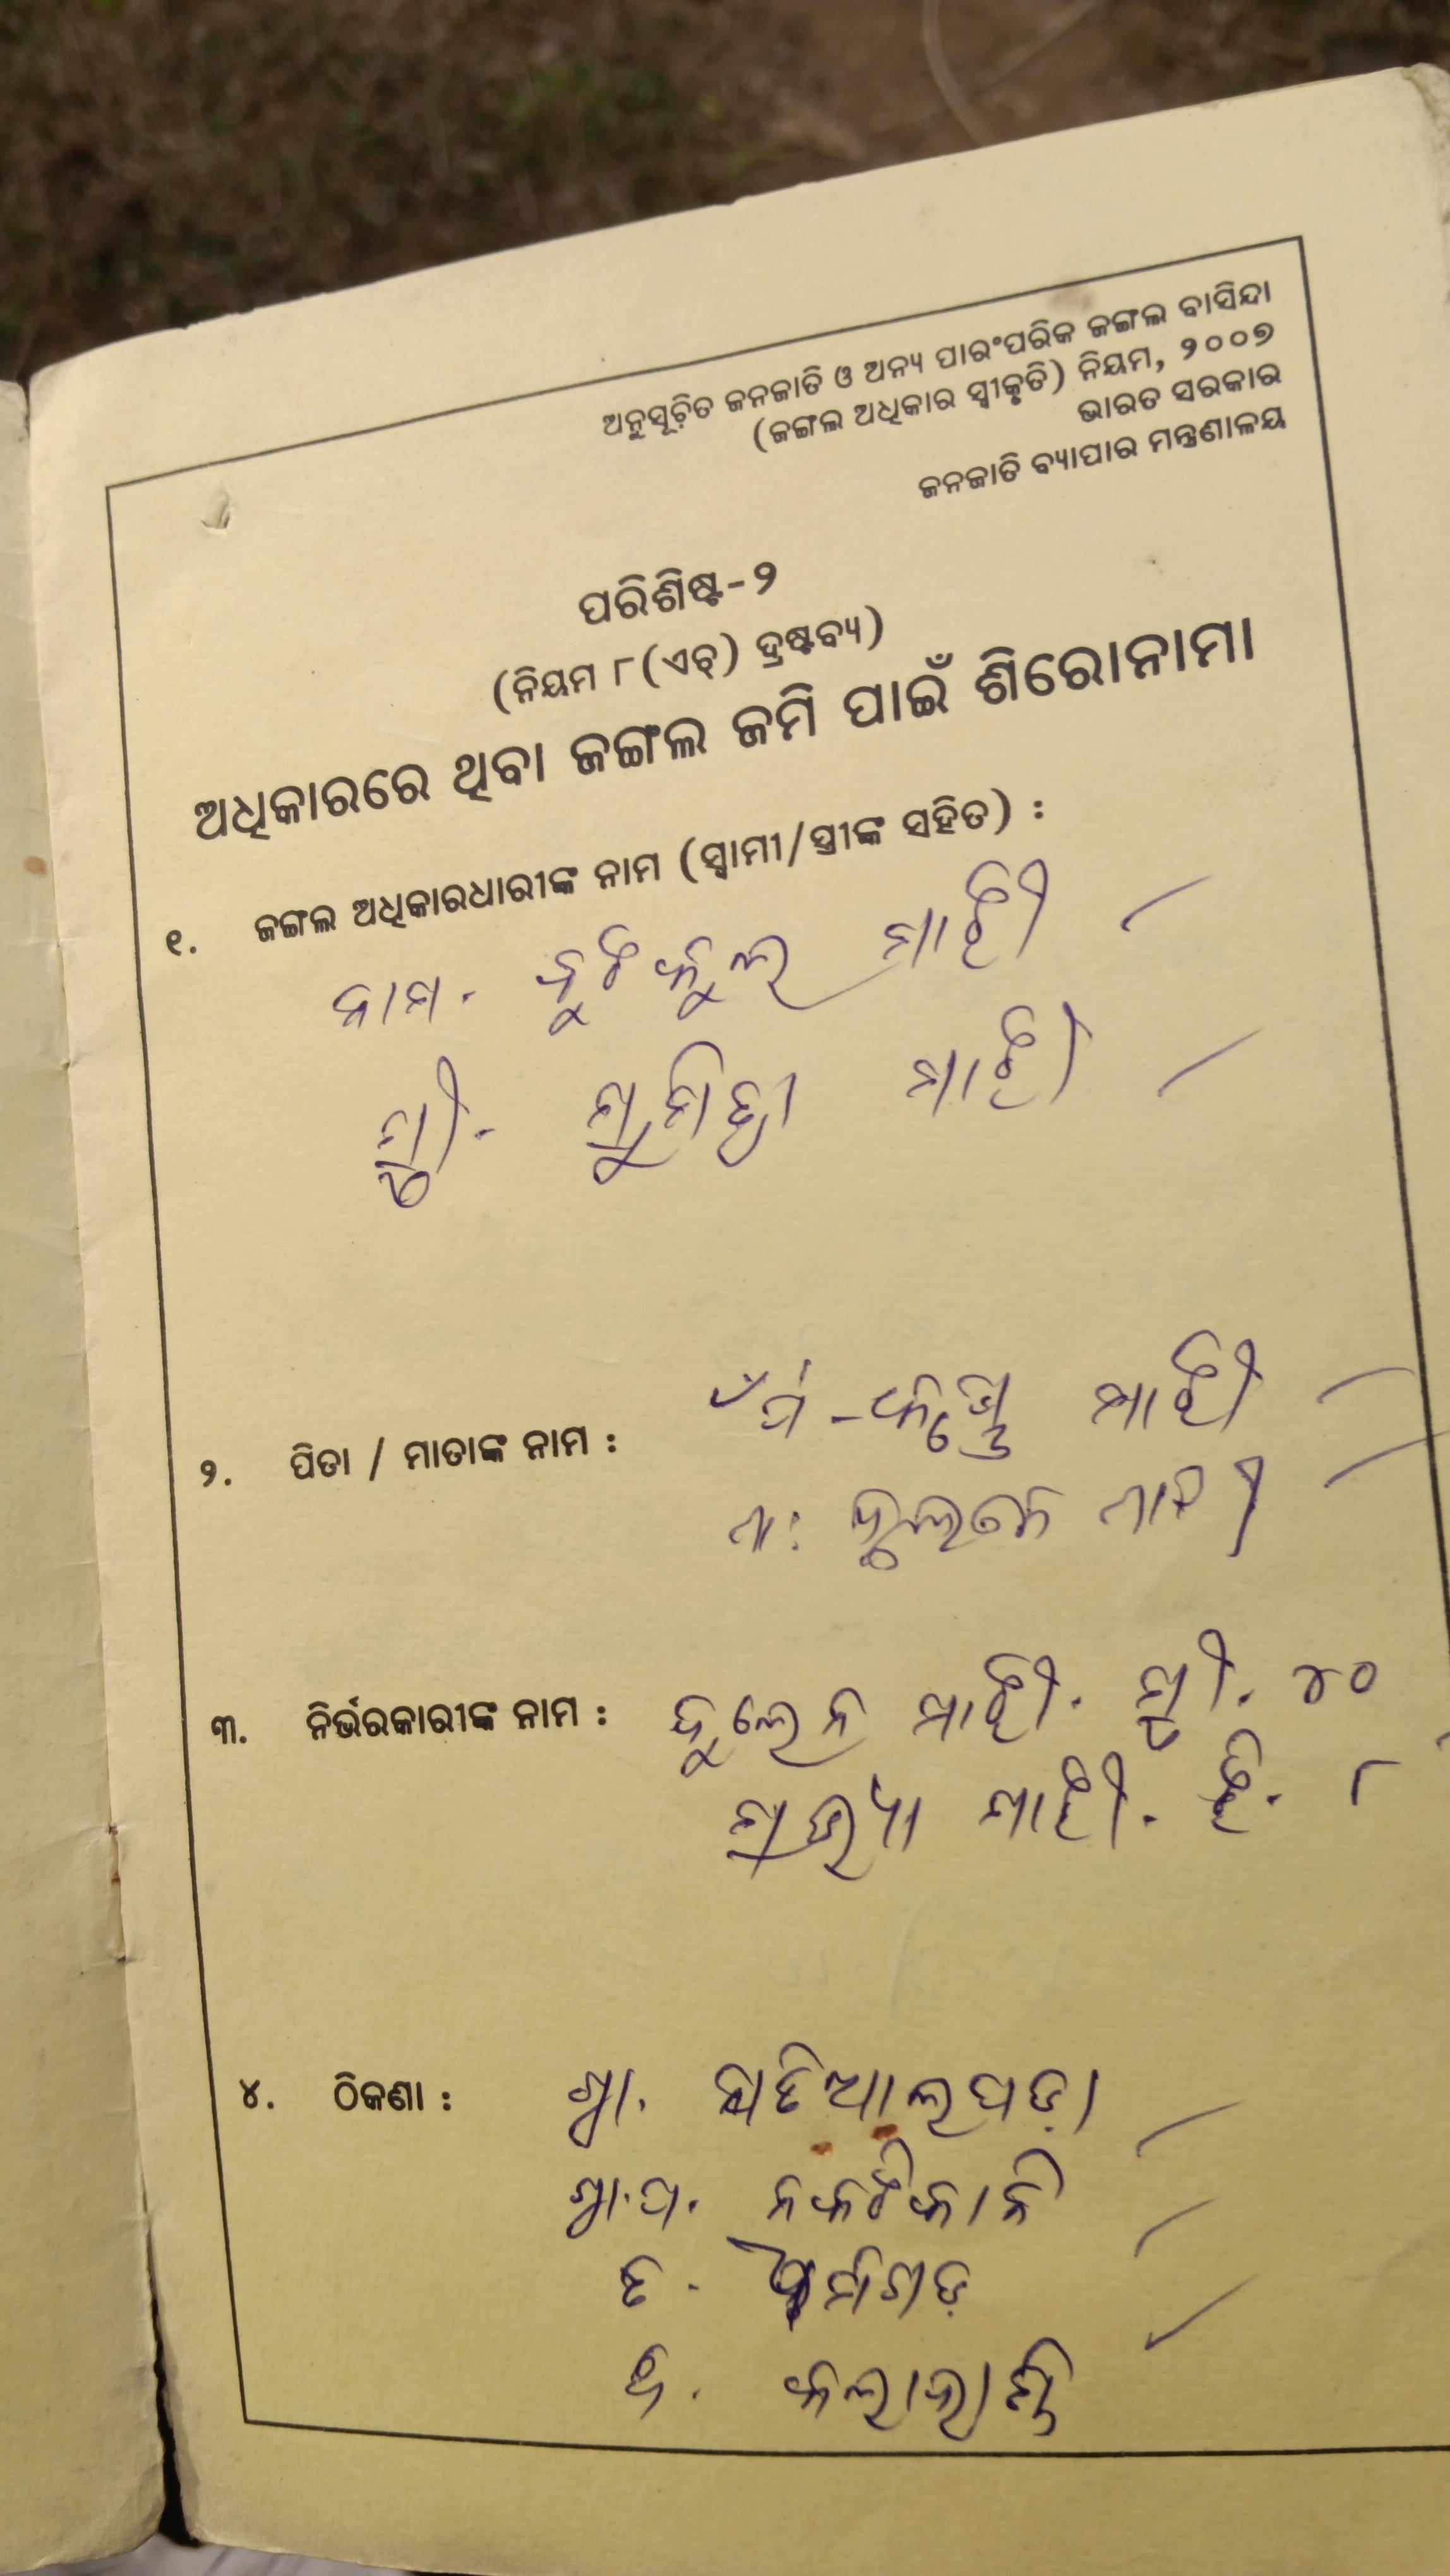 ଅନୁସୂଚିତ ଜନଜାତି ଓ ଅନ୍ୟ ପାରଂପରିକ ଜଙ୍ଗଲ ବାସିନ୍ଦା
(ଜଙ୍ଗଲ ଅଧିକାର ସ୍ୱୀକୃତି) ନିୟମ, ୨୦୦୭
ଭାରତ ସରକାର
ଜନଜାତି ବ୍ୟାପାର ମନ୍ତ୍ରଣାଳୟ
ପରିଶିଷ୍ଟ-୨
(ନିୟମ ୮(ଏଚ୍) ଦ୍ରଷ୍ଟବ୍ୟ)
ଅଧିକାରରେ ଥିବା ଜଙ୍ଗଲ ଜମି ପାଇଁ ଶିରୋନାମା
୧. ଜଙ୍ଗଲ ଅଧିକାରଧାରୀଙ୍କ ନାମ (ସ୍ୱାମୀ/ସ୍ତ୍ରୀଙ୍କ ସହିତ) :
ନାମ. ମାଝୀ
ସ୍ତ୍ରୀ- ମାଝୀ
୨. ପିତା / ମାତାଙ୍କ ନାମ : ମାଝୀ
ମା: ମାଝୀ
୩. ନିର୍ଭରକାରୀଙ୍କ ନାମ : ମାଝୀ. ସ୍ତ୍ରୀ. ୪୦
ମାଝୀ. ଝି. ୮
୪. ଠିକଣା : ଗ୍ରା.
ଗ୍ରା.ପ. ନକଟିକାନି
ତ.
ଜି. କଳାହାଣ୍ଡି